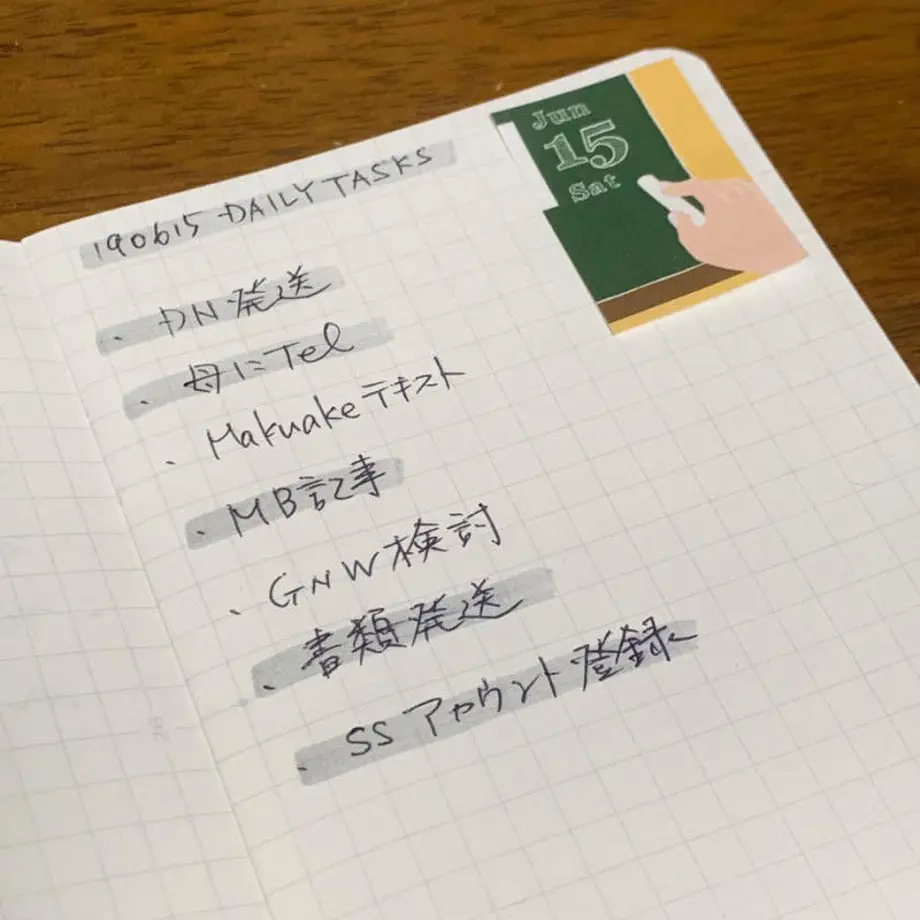 190615 DAILY TASKS
Jun
15
Sat
・DN発送
・母にTel
・Makuakeテキスト
・MB記事
・GNW検討
・書類発送
・SSアカウント登録